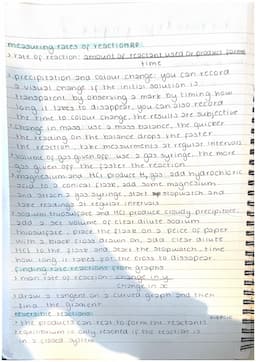 measuring rates of reaction RP:
> rate of reaction: amount of reactant used or product formed
time
> precipitation and colour change: you can record
a visual change if the initial solution is
transparent by observing a mark by timing how
long it takes to disappear, you can also record
the time to colour change, the results are subjective
> change in mass: use a mass balance, the quicker
the reading on the balance drops the faster
the reaction, take measurments at regular intervals
> volume of gas given off: use a gas syringe, the more
gas given off the faster the reaction
> magnesium and HCl produce H₂ gas, add hydrochloric
acid to a conical flask, add some magnesium
and attach a gas syringe, start stopwatch and
take readings at regular intervals
> sodium thiosulfate and HCl produce cloudy precipitate:
add a set volume of clear dilute sodium
thiosulfate, place the flask on a peice of paper
with a black cross drawn on, add clear dilute
HCl to the flask and start the stopwatch, time
how long it takes for the cross to dissapear
finding rate reactions from graphs
> mean rate of reaction: change in y
change in x
> draw a tangent on a curved graph and then
find the gradient
reversible reactions:
> the products can reat to form the reactants
equilibrium is only reached if the reaction is
in a closed system